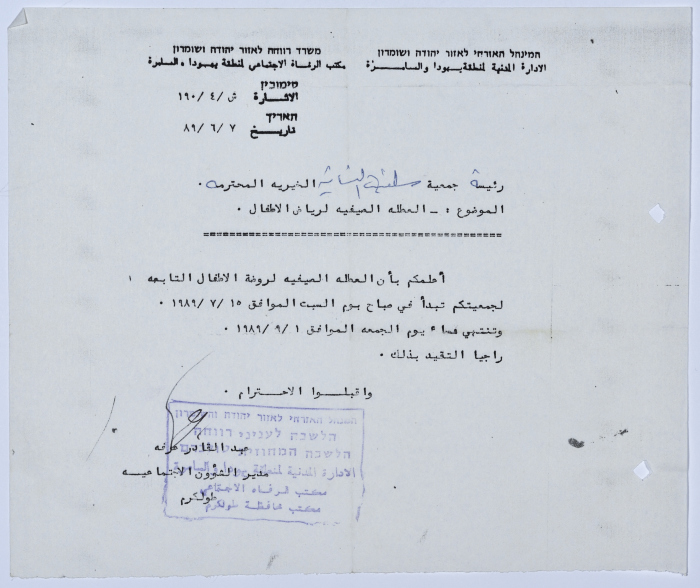 המינהל האזרחי לאזור יהודה ושומרון
الادارة المدنية لمنطقة يهودا والسامرة
משרד רווחה לאזור יהודה ושומרון
مكتب الرفاه الاجتماعي لمنطقة يهودا والسامرة
סימוכין
الاشارة ش/ ٤/ ١٩٠
תאריך
تاريخ ٧/ ٦/ ٨٩
رئيسة جمعية الخيريه المحترمه .
الموضوع : ـ العطله الصيفيه لرياض الاطفال .
====================================
أعلمكم بأن العطله الصيفيه لروضة الاطفال التابعه
لجمعيتكم تبدأ في صباح يوم السبت الموافق ١٥/ ٧/ ١٩٨٩ .
وتنتهي مساء يوم الجمعه الموافق ١/ ٩/ ١٩٨٩ .
راجيا التقيد بذلك .
واقبلــوا الاحتــرام .
המנהל האזרחי לאזור יהודה ושומרון
הלשכה לעניני רווחה
הלשכה המחוזית
عبد القادر
الادارة المدنية لمنطقة يهودا والسامرة
مدير الشؤون الاجتماعيـــه
مكتب الرفاه الاجتماعي
طولكرم
مكتب محافظة طولكرم